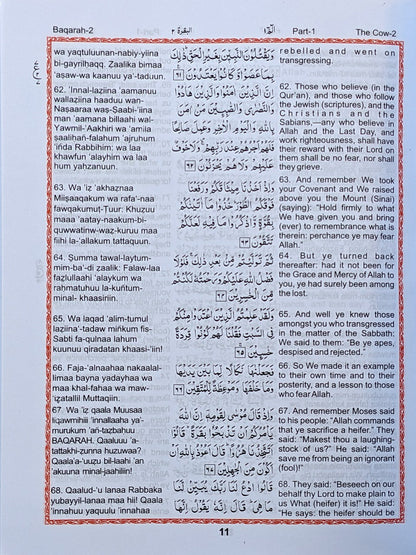 Baqarah-2
البقرة ٢
الٓمّٓ ١
Part-1
The Cow-2
wa yaqtuluunan-nabiy-yiina
bi-gayrilhaqq. Zaalika bimaa
'aṣaw-wa kaanuu ya'-taduun.
62. 'Innal-laziina 'aamanuu
wallaziina haaduu wan-
Naṣaaraa waṣ-Ṣaabi-'iina
man 'aamana billaahi wal-
Yawmil-'Aakhiri wa 'amila
saaliḥan-falahum 'ajruhum
'inda Rabbihim: wa laa
khawfun 'alayhim wa laa
hum yaḥzanuun.
63. Wa 'iz 'akhaznaa
Miiṣaaqakum wa rafa'-naa
fawqakumuṭ-Ṭuur: Khuzuu
maaa 'aatay-naakum-bi-
quwwatinw-waz-kuruu maa
fiihi la-'allakum tattaquun.
64. Ṣumma tawal-laytum-
mim-ba'-di zaalik: Falaw-laa
faẓlullaahi 'alaykum wa
raḥmatuhuu la-kuñtum-
minal- khaasiriin.
65. Wa laqad 'alim-tumul
laziina'-tadaw miñkum fis-
Sabti fa-qulnaa lahum
kuunuu qiradatan khaasi-'iin!
66. Faja-'alnaahaa nakaalal-
limaa bayna yadayhaa wa
maa khal-fahaa wa maw-
'iẓatallil Muttaqiin.
67 Wa 'iz qaala Muusaa
liqawmihiii 'innallaaha ya'-
murukum 'an-taẓbahuu
BAQARAH. Qaaluuu 'a-
tattakhi-zunna huzuwaa?
Qaala'a-'uuẓu bil-laahi 'an
'akuuna minal-jaahiliin!
68. Qaalud-'u lanaa Rabbaka
yubayyil-lanaa maa hii! Qaala
'innahuu yaquulu 'innahaa
وَيَقْتُلُوْنَ النَّبِيّٖنَ بِغَيْرِ الْحَقِّ ذٰلِكَ
بِمَا عَصَوْا وَّ كَانُوْا يَعْتَدُوْنَ ٦١
اِنَّ الَّذِيْنَ اٰمَنُوْا وَالَّذِيْنَ هَادُوْا
وَالنَّصٰرٰى وَالصّٰبِـِٕيْنَ مَنْ اٰمَنَ
بِاللّٰهِ وَالْيَوْمِ الْاٰخِرِ وَعَمِلَ صَالِحًا
فَلَهُمْ اَجْرُهُمْ عِنْدَ رَبِّهِمْ وَلَاخَوْفٌ
عَلَيْهِمْ وَلَاهُمْ يَحْزَنُوْنَ ٦٢
وَاِذْ اَخَذْنَا مِيْثَاقَكُمْ وَرَفَعْنَا
فَوْقَكُمُ الطُّوْرَ خُذُوْا مَآ اٰتَيْنٰكُمْ
بِقُوَّةٍ وَّاذْكُرُوْا مَا فِيْهِ لَعَلَّكُمْ
تَتَّقُوْنَ ٦٣
ثُمَّ تَوَلَّيْتُمْ مِّنْ بَعْدِ ذٰلِكَ فَلَوْلَا
فَضْلُ اللّٰهِ عَلَيْكُمْ وَرَحْمَتُهٗ لَكُنْتُمْ
مِّنَ الْخٰسِرِيْنَ ٦٤
وَلَقَدْ عَلِمْتُمُ الَّذِيْنَ اعْتَدَوْا مِنْكُمْ
فِى السَّبْتِ فَقُلْنَا لَهُمْ كُوْنُوْا قِرَدَةً
خٰسِـِٕيْنَ ٦٥
فَجَعَلْنٰهَا نَكَالًا لِّمَا بَيْنَ يَدَيْهَا
وَمَا خَلْفَهَا وَمَوْعِظَةً لِّلْمُتَّقِيْنَ ٦٦
وَاِذْ قَالَ مُوْسٰى لِقَوْمِهٖٓ اِنَّ اللّٰهَ
يَاْمُرُكُمْ اَنْ تَذْبَحُوْا بَقَرَةً قَالُوْٓا
اَتَتَّخِذُنَا هُزُوًا قَالَ اَعُوْذُ بِاللّٰهِ اَنْ
اَكُوْنَ مِنَ الْجٰهِلِيْنَ ٦٧
قَالُوا ادْعُ لَنَا رَبَّكَ يُبَيِّنْ لَّنَا
مَا هِىَ قَالَ اِنَّهٗ يَقُوْلُ اِنَّهَا
rebelled and went on
transgressing.
62. Those who believe (in the
Qur'an), and those who follow
the Jewish (scriptures), and the
Christians and the
Sabians,—any who believe in
Allah and the Last Day, and
work righteousness, shall have
their reward with their Lord on
them shall be no fear, nor shall
they grieve.
63. And remember We took
your Covenant and We raised
above you the Mount (Sinai)
(saying): "Hold firmly to what
We have given you and bring
(ever) to remembrance what is
therein: perchance ye may fear
Allah."
64. But ye turned back
thereafter: had it not been for
the Grace and Mercy of Allah to
you, ye had surely been among
the lost.
65. And well ye knew those
amongst you who transgressed
in the matter of the Sabbath:
We said to them: "Be ye apes,
despised and rejected."
66. So We made it an example
to their own time and to their
posterity, and a lesson to those
who fear Allah.
67. And remember Moses said
to his people: "Allah commands
that ye sacrifice a heifer." They
said: "Makest thou a laughing-
stock of us?" He said: "Allah
save me from being an ignorant
(fool)!"
68. They said: "Beseech on our
behalf thy Lord to make plain to
us What (heifer) it is!" He said:
"He says: the heifer should be
11